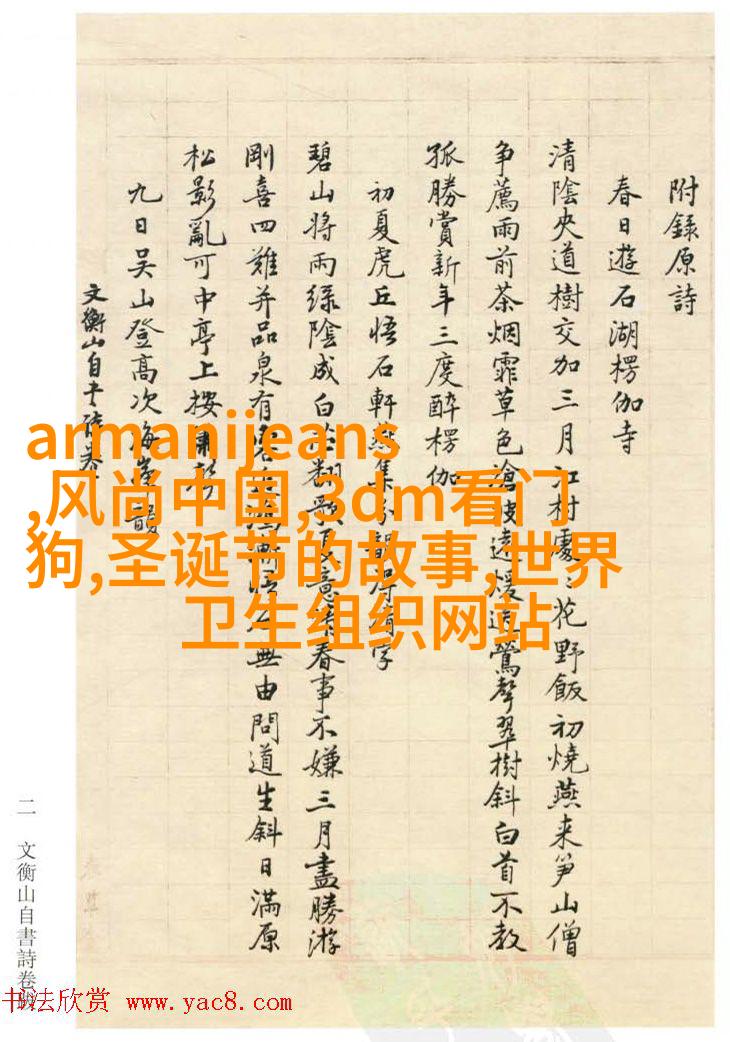 附錄原詩
春日遊石湖楞伽寺
清陰夾道樹交加三月江村處〻花野飯初燒燕来笋山僧
争薦雨前茶烟霏草色滄波遠煖逗鶯聲翠樹斜白首不教
孤勝賞新年三度醉楞伽
初夏虎丘悟石軒燕集分韻得有字
碧山將雨緑陰成白 翻歌夏意 春事不嫌三月盡勝游
剛喜四難并品泉有 無由問道生斜日滿原
松影亂可中亭上按
九日吴山登高次 韻
文衡山自書詩卷
armanijeans
,风尚中国,3dm看门
狗,圣诞节的故事,世界
卫生组织网站
二 文衡山自書詩卷跋
书法欣赏 www.yac8.com